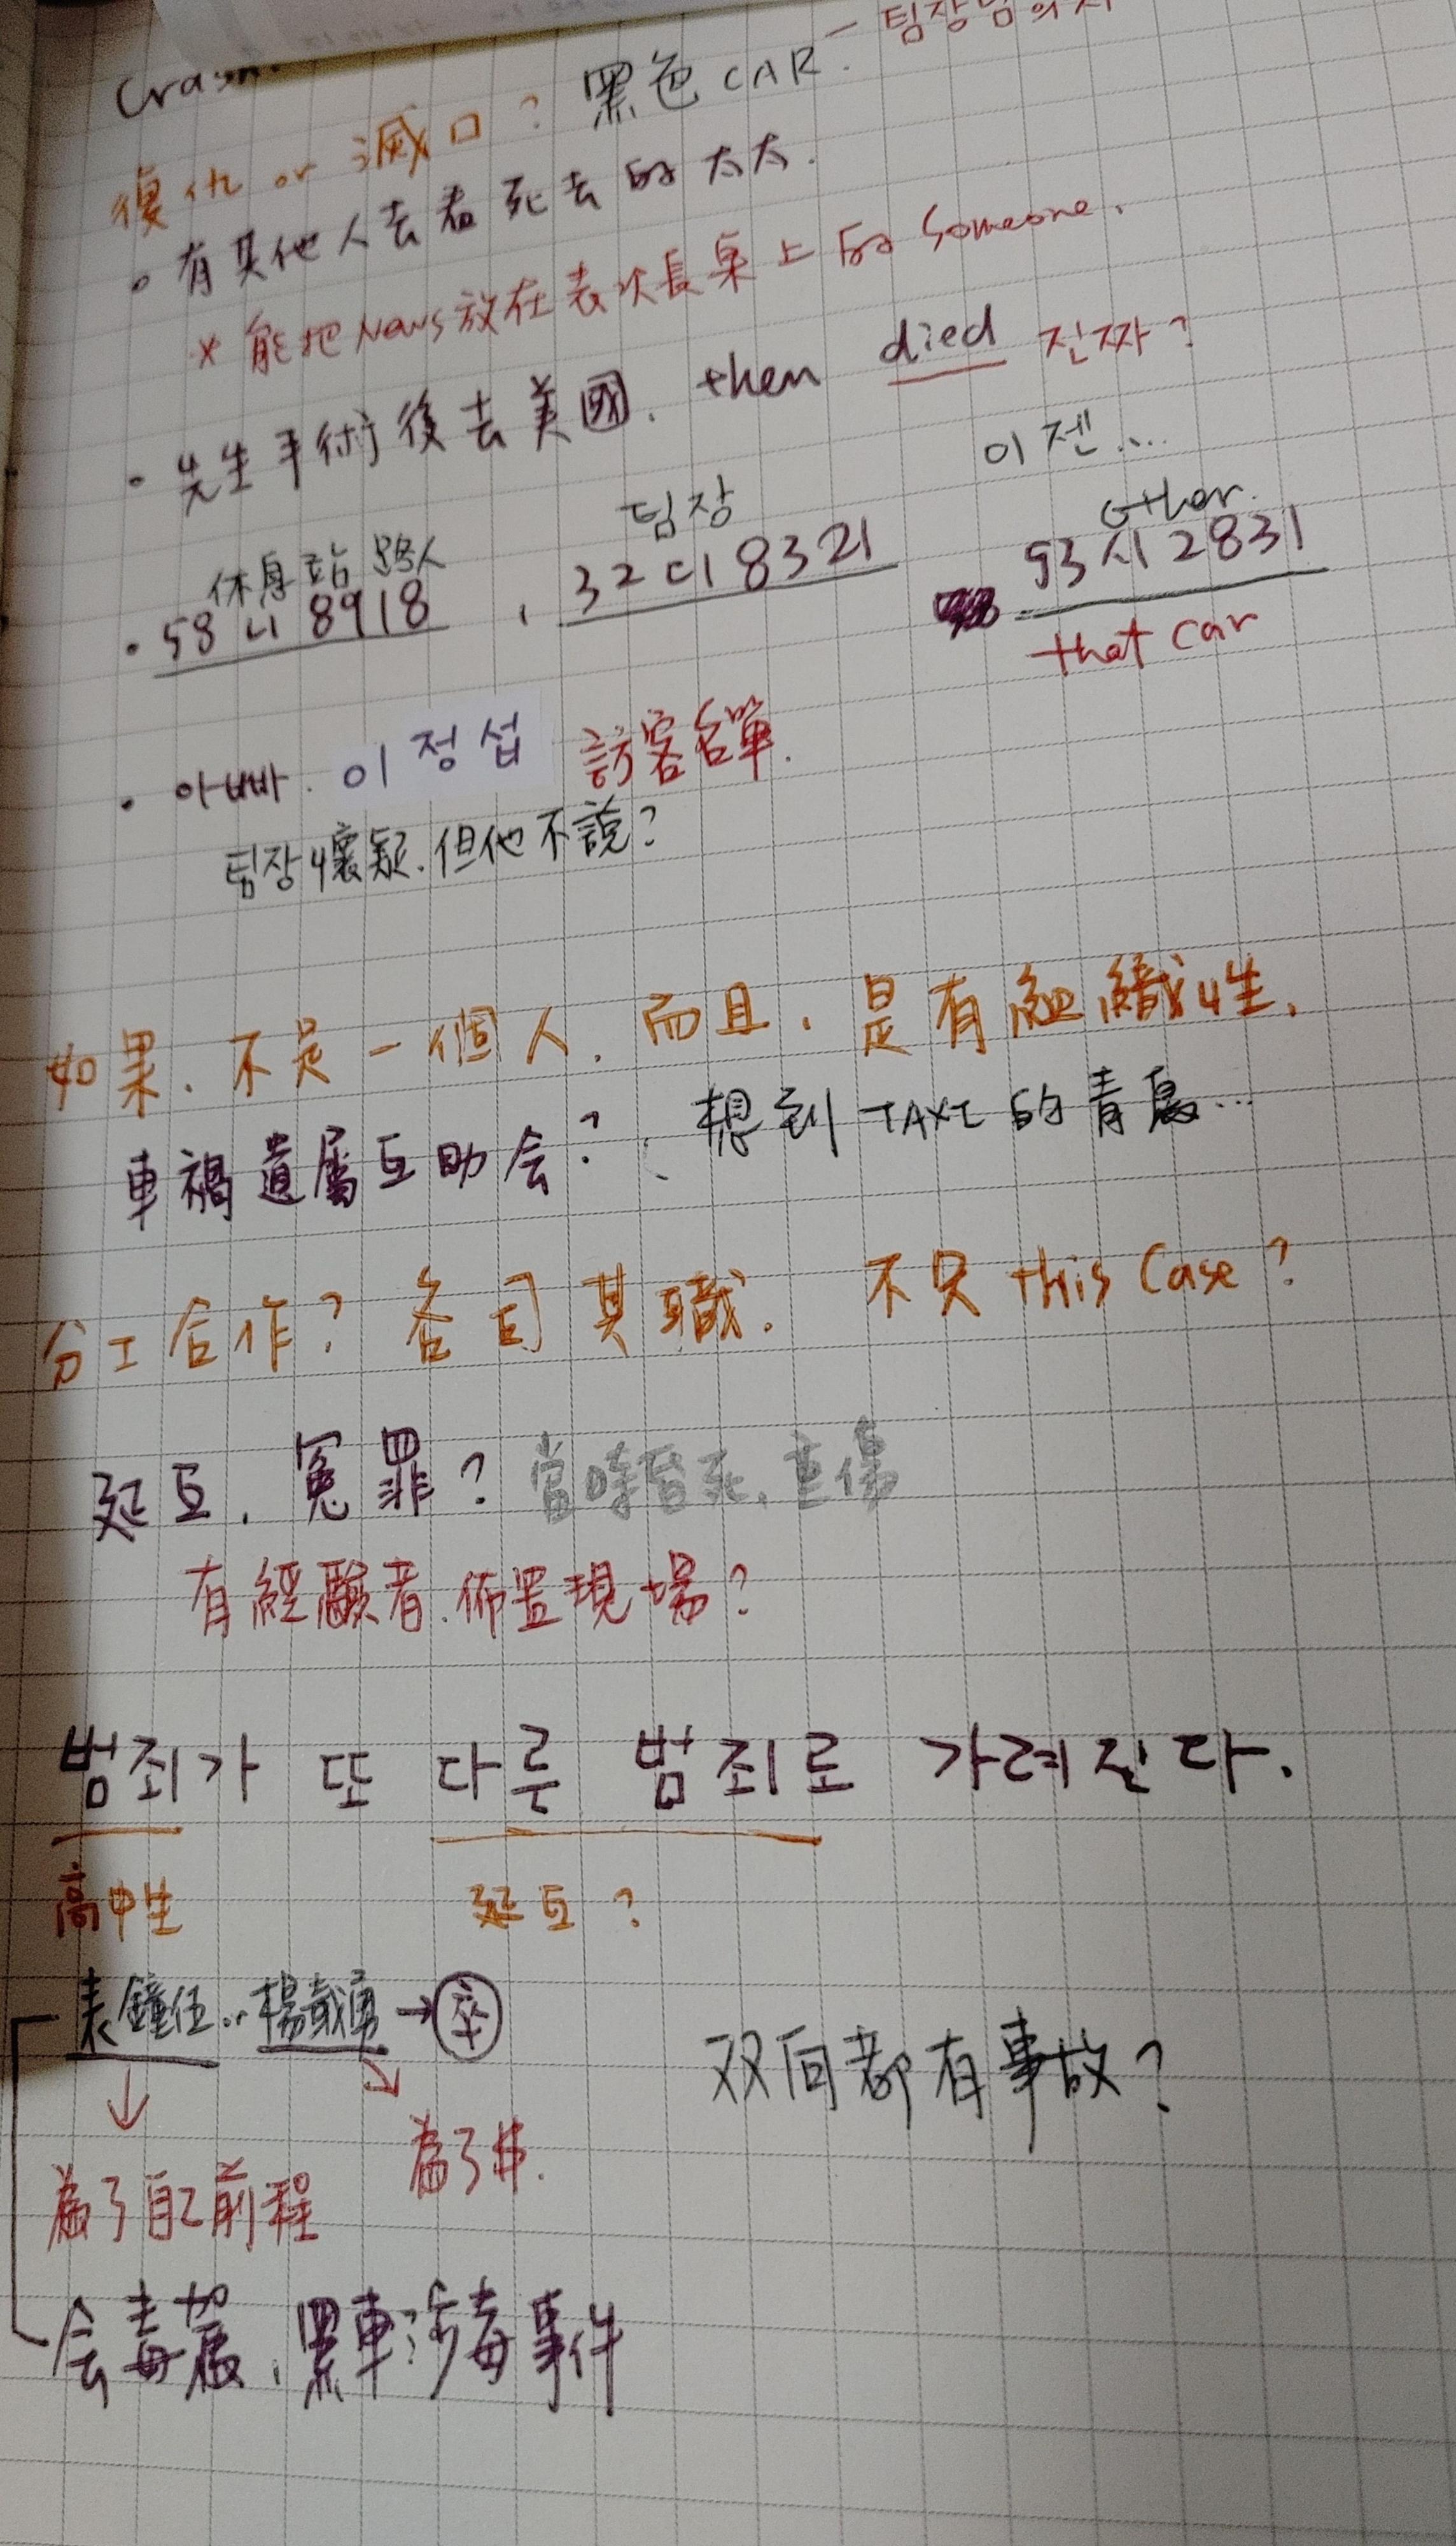 Crash.
復仇 or 滅口? 黑色 CAR. - 팀장님의
• 有其他人去看死去的太太.
× 能把 News 放在表次長桌上的 Someone.
• 先生手術後去美國. then died 진짜?
이젠...
休息站路人 팀장 other.
• 58 너 8918 , 32 더 8321 53 시 2831
that car
• 아빠. 이정섭 訪客名單.
팀장 懷疑. 但他不說?
如果. 不是一個人. 而且. 是有組織性.
車禍遺屬互助会? 、想到 TAXI 的青鳥...
分工合作? 各司其職. 不只 this Case?
延豆. 冤罪? 當時皆死. 重傷
有經驗者. 佈置現場?
범죄가 또 다른 범죄로 가려진다.
高中生 延豆?
表鐘任.. 楊戴勇 → 卒
双向都有事故?
為了自己前程 為了#.
会毒駕、黑車涉毒事件